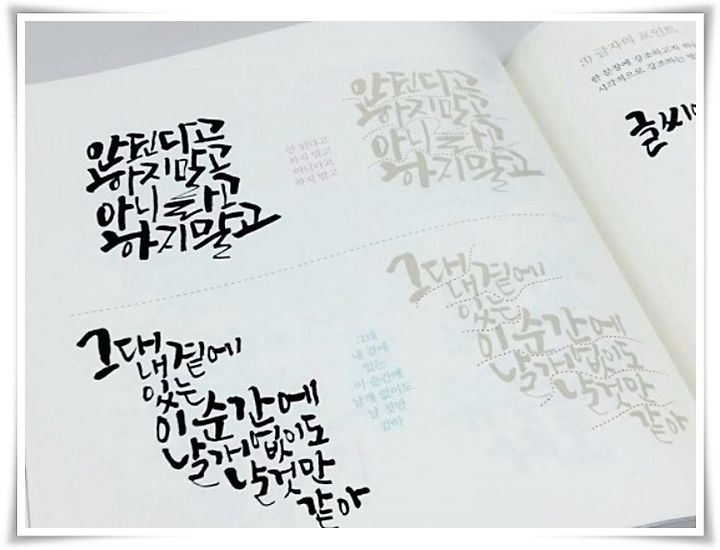 안된다고
하지말고
아니라고
하지말고
안 된다고
하지 말고
아니라고
하지 말고
안된다고
하지말고
아니라고
하지말고
그대
내곁에
있는
이순간에
날개없이도
날것만
같아
그대
내 곁에
있는
이 순간에
날개 없이도
날 것만
같아
그대
내곁에
있는
이순간에
날개없이도
날것만
같아
3) 글자의 포인트
한 문장에 강조하고자 하는
시각적으로 강조하는
글씨